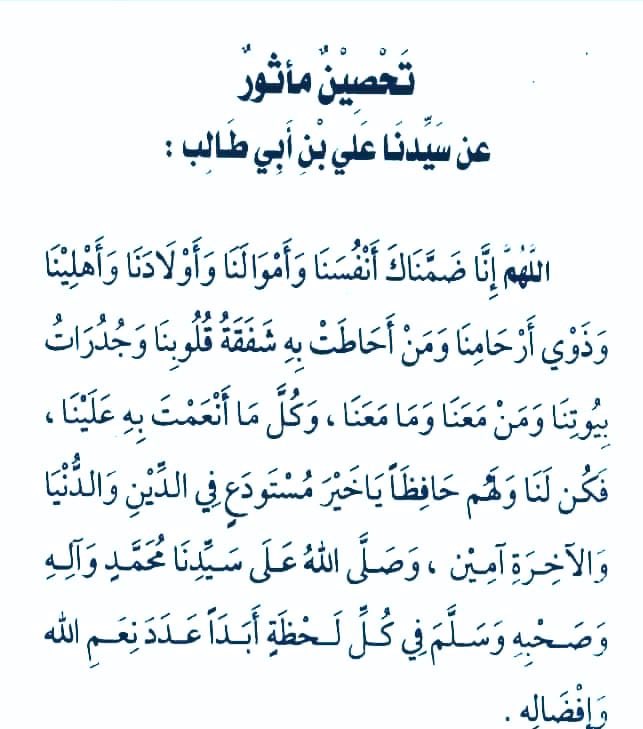 تَحْصِيْنٌ مأثورٌ
عن سَيِّدنَا عَلي بْنِ أَبِي طَالِب :
اللَّهُمَّ إِنَّا ضَمَّنَاكَ أَنْفُسَنَا وَأَمْوَالَنَا وَأَوْلَادَنَا وَأَهْلِيْنَا
وَذَوْي أَرْحَامِنَا وَمَنْ أَحَاطَتْ بِهِ شَفَقَةُ قُلُوبِنَا وَجُدُرَاتُ
بِيُوتِنَا وَمَنْ مَعَنَا وَمَا مَعَنَا ، وَكُلَّ مَا أَنْعَمْتَ بِهِ عَلَيْنَا ،
فَكُن لَنَا وَلَهُم حَافِظَاً يَاخَيْرَ مُسْتَودَعٍ فِي الدِّيْنِ وَالدُّنْيَا
وَالآخِرَةِ آمِيْن ، وَصَلَّى اللهُ عَلَى سَيِّدِنَا مُحَمَّدٍ وَآلِهِ
وَصَحْبِهِ وَسَلَّمَ فِي كُلِّ لَحْظَةٍ أَبَدَاً عَدَدَ نِعَمِ الله
وَإِفْضَالِه .